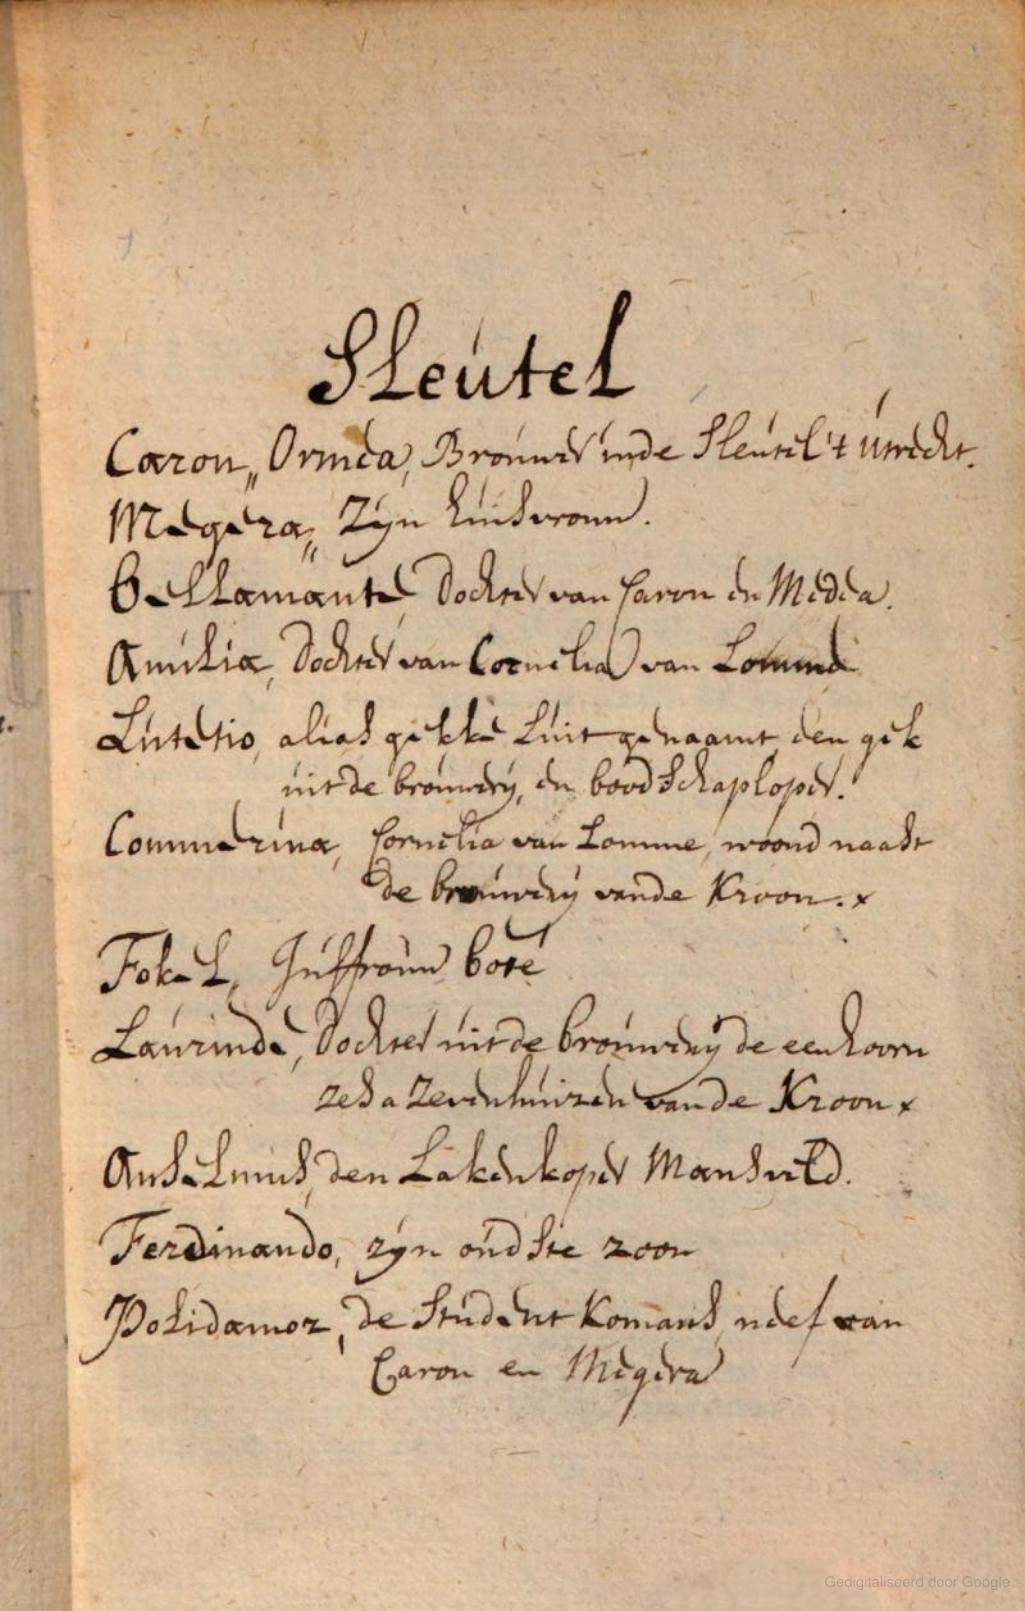 Sleutel
Caron,, Ormea, Brouwer inde Sleutel 't Utrecht.
Megera,, Zyn huisvrouw.
Bellamante, dochter van Caron en Medea.
Amilia, dochter van Cornelia van Lomme
Lutetio, alias gekke Luit genaamt, den gek
uit de brouwery, en boodschaploper.
Commerina, Cornelia van Lomme, woond naast
de brouwery vande Kroon. x
Fokel, Juffrouw boté
Laurinde, dochter uit de brouwery de eenhoorn
zes a zevenhuizen van de Kroon x
Anselmus, den Lakenkoper Mansveld.
Ferdinando, zyn oudste zoon
Polidamor, de Student Komans, neef van
Caron en Megera
Gedigitaliseerd door Google